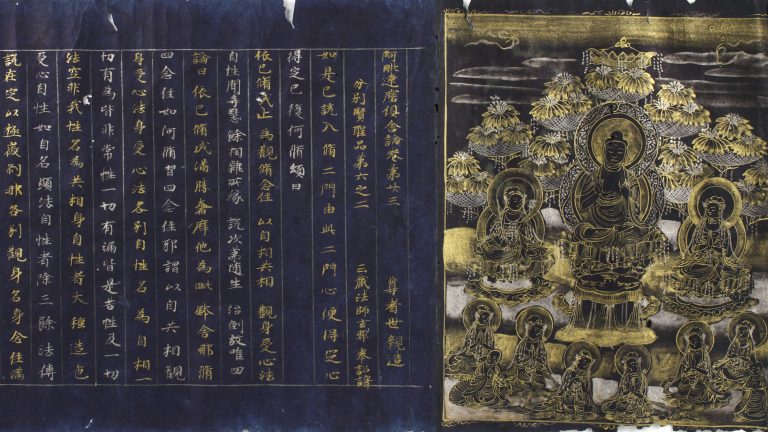 阿毗達磨俱舍論卷第廿三 尊者世親造
分別賢聖品第六之二 三藏法師玄奘奉詔譯
如是已說入脩二門由此二門心便得定心
得定已後何所脩頌曰
依已脩成止 為觀脩念住 以自相共相 觀身受心法
自性聞等慧 餘相雜所緣 說次第隨生 治倒故唯四
論曰依已脩成滿勝奢摩他為毗鉢舍那脩
四念住如何脩習四念住耶謂以自共相觀
身受心法身受心法各別自性名為自相一
切有為皆非常性一切有漏皆是苦性及一切
法空非我性名為共相身自性者大種造色
受心自性如自名顯法自性者除三餘法傳
說在定以極微剎那各別觀身名身念住滿